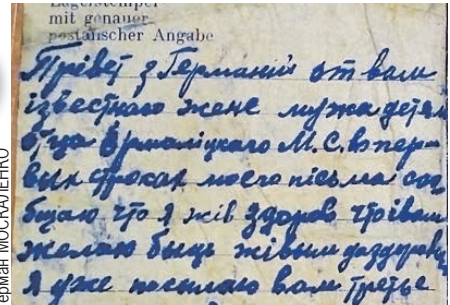 Lagerstempel
mit genauer
postanscher Angabe
Прівет з Германіи от вам
ізвестного жене мужа детям
отца Ермаліцкаго М.С. в пер-
вых строках моего пісьма соо
бщаю что я жів здоров что і вам
желаю быць жівым да здоровым
Я уже посылаю вам третье
ерман МОСКАЛЕНКО